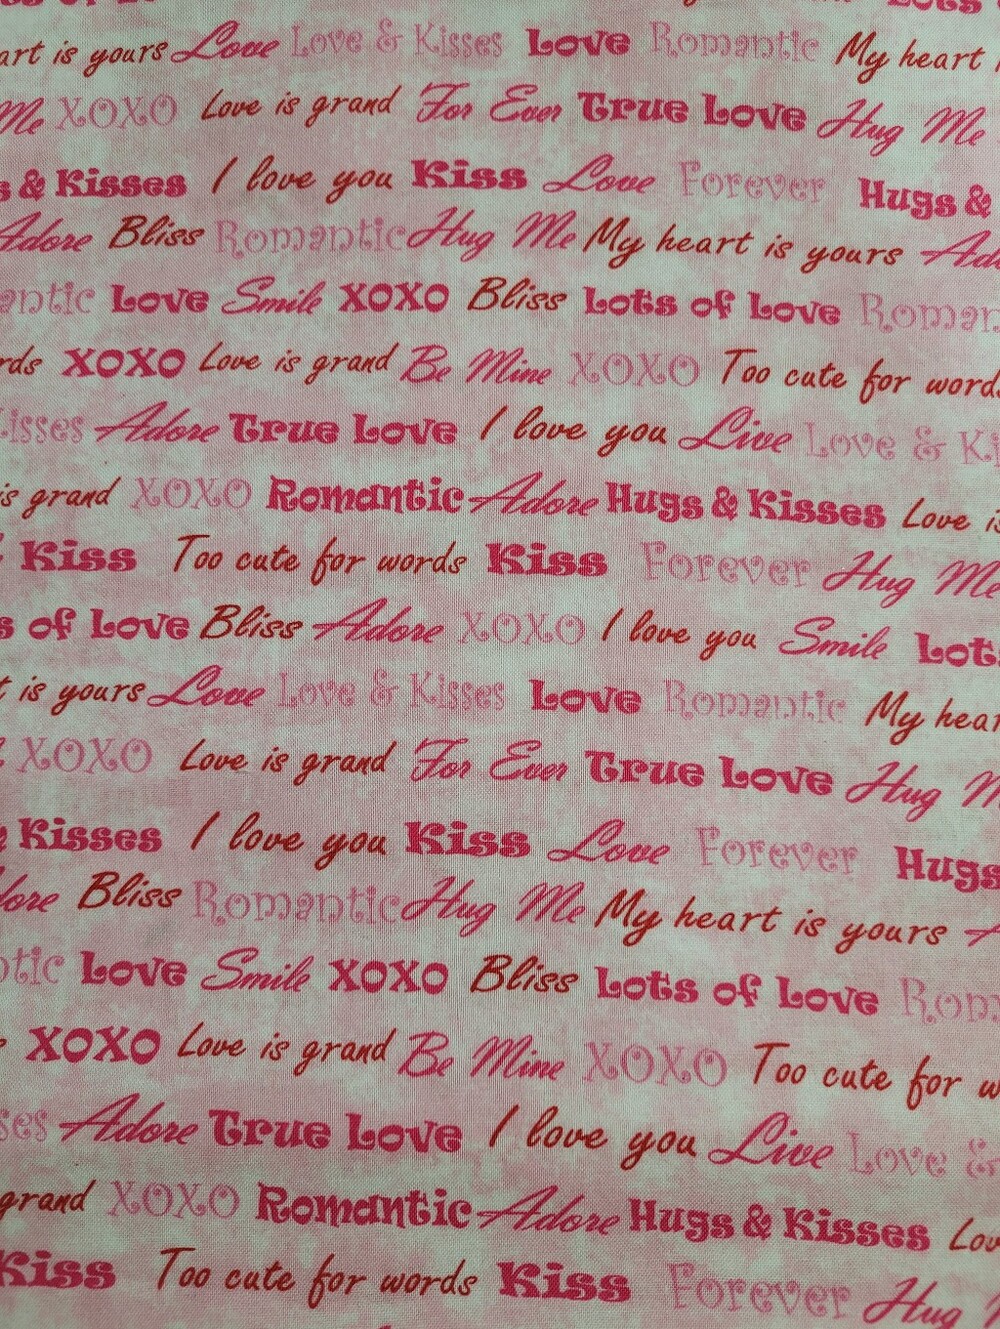 Lots
art is yours Love Love & Kisses Love Romantic My heart
Me XOXO Love is grand For Ever True Love Hug Me
& Kisses I love you Kiss Love Forever Hugs &
Adore Bliss Romantic Hug Me My heart is yours Ad
antic Love Smile XOXO Bliss Lots of Love Roman
rds XOXO Love is grand Be Mine XOXO Too cute for words
Kisses Adore True Love I love you Live Love & Ki
is grand XOXO Romantic Adore Hugs & Kisses Love is
Kiss Too cute for words Kiss Forever Hug Me
s of Love Bliss Adore XOXO I love you Smile Lots
t is yours Love Love & Kisses Love Romantic My hear
XOXO Love is grand For Ever True Love Hug M
& Kisses I love you Kiss Love Forever Hugs
dore Bliss Romantic Hug Me My heart is yours
otic Love Smile XOXO Bliss Lots of Love Rom
XOXO Love is grand Be Mine XOXO Too cute for w
ses Adore True Love I love you Live Love &
grand XOXO Romantic Adore Hugs & Kisses Lov
Kiss Too cute for words Kiss Forever Hug